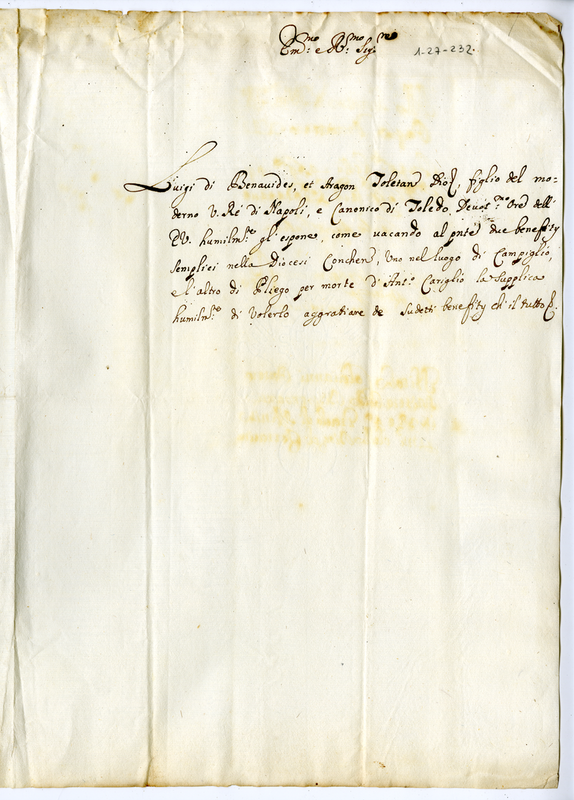 Em.mo e R.mo Sig.re
1-27-232.
Luigi di Benauides, et Aragon Toletan Dioc, figlio del mo=
derno V. Ré di Napoli, e Canonico di Toledo, Deuot.mo Ore dell'
EV. humilm.te gl'espone, come vacando al pnte due benefity
semplici nella Diocesi Conchen, uno nel luogo di Campiglio,
e l'altro di Pliego per morte d'Ant.o Cariglio la supplica
humilm.te di volerlo aggratiare de sudetti benefity ch'il tutto